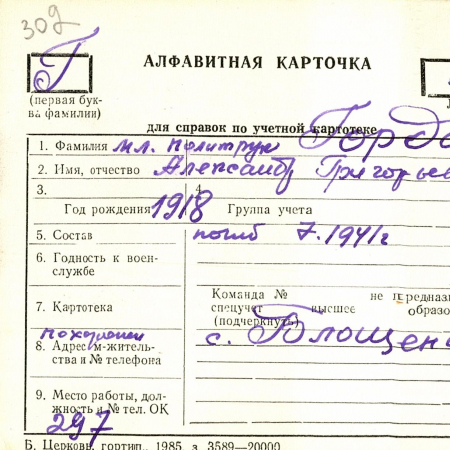 309
Г
АЛФАВИТНАЯ КАРТОЧКА
(первая бук-
ва фамилии)
для справок по учетной картотеке
1. Фамилия мл. политрук Гордо
2. Имя, отчество Александр Григорьев
3.
4.
Год рождения 1918 Группа учета
5. Состав погиб 7.1941г
6. Годность к воен-
службе
Команда № не предназ
7. Картотека спецучет высшее образо
(подчеркнуть)
похоронен с. Блощен
8. Адрес м-житель-
ства и № телефона
9. Место работы, дол-
жность и № тел. ОК
297
Б. Церковь, гортип., 1985, з. 3589—20000